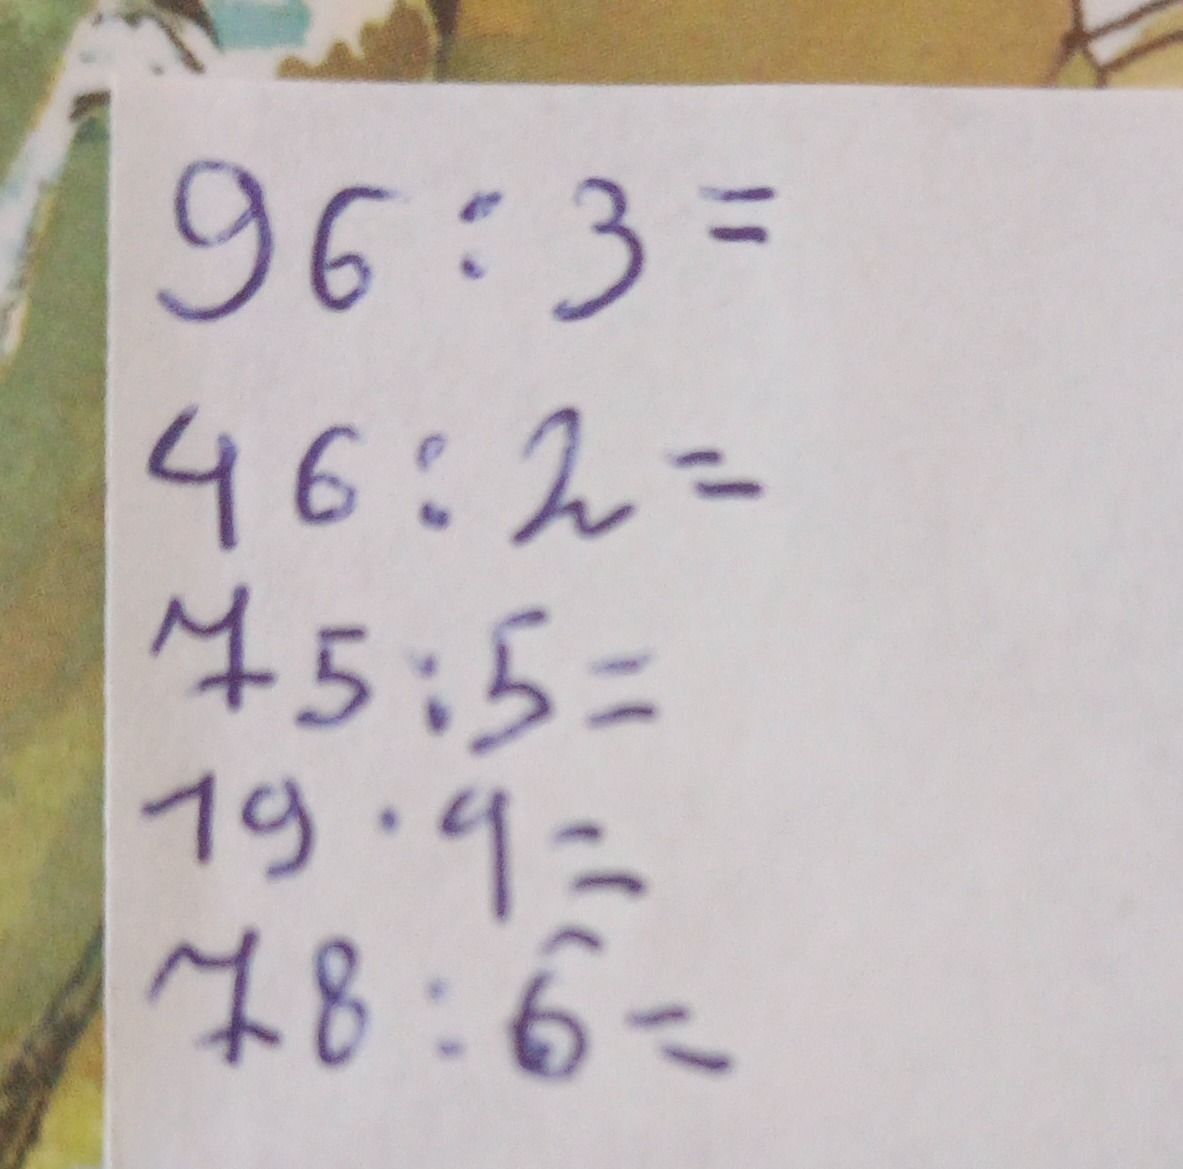 96 : 3 =
46 : 2 =
75 : 5 =
19 · 4 =
78 : 6 =